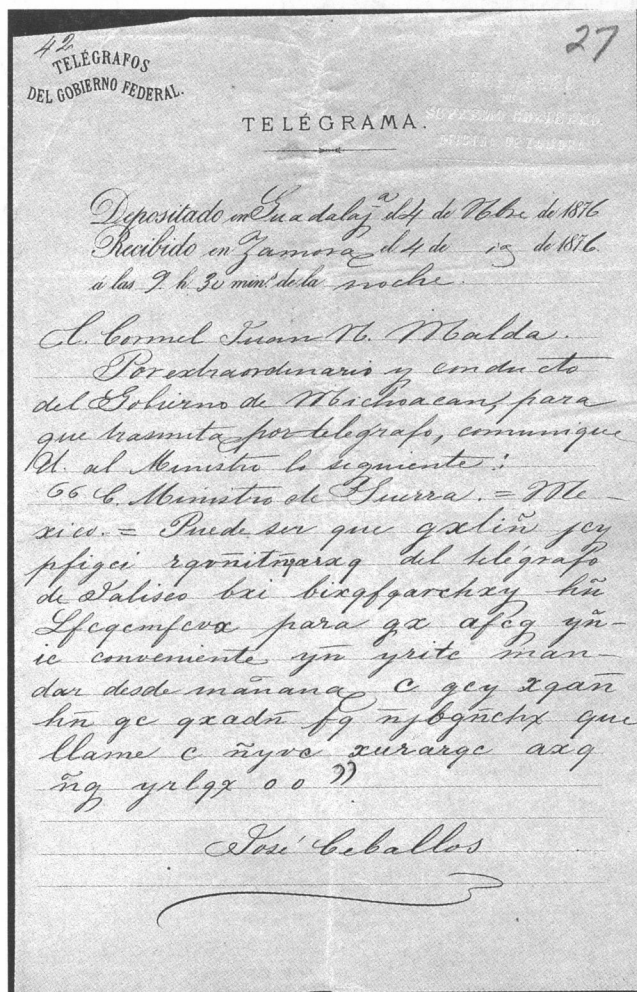 42
27
TELÉGRAFOS
DEL GOBIERNO FEDERAL.
TELÉGRAMA.
Depositado en Guadalajª el 4 de Nbre de 1876
Recibido en Zamora el 4 de de 1876.
á las 9 h. 30 min.s de la noche.
C. Cornel Juan N. Malda.
Por extraordinario y conducto
del Gobierno de Michoacan, para
que trasmita por telegrafo, comunique
U. al Ministro lo seguiente:
"C. Ministro de Guerra. = Me-
xico. = Puede ser que gxliñ jcy
pfigci rqvñitñyarxq del telégrafo
de Jalisco bxi bixqfqarchxy hñ
Lfcqcmfcvx para gx afcq yñ-
ic conveniente yn yritc man-
dar desde mañana c gcy xqañ
hñ gc gxadñ fq ñjbgñchx que
llame c ñyvc xurarqc axq
ñq yrlqx o o"
José Ceballos